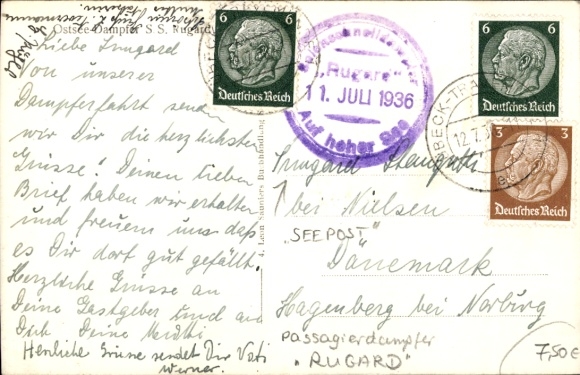 Ostsee-Dampfer S.S. Rugard
Liebe Irmgard
von unserer
Dampferfahrt senden
wir Dir die herzlichsten
Grüsse! Deinen lieben
Brief haben wir erhalten
und freuen uns daß
es Dir dort gut gefällt.
Herzliche Grüsse an
Deine Gastgeber und an
Dich Deine Mutti
Herzliche Grüsse sendet Dir Vati
Werner.
6 6
Deutsches Reich
"Rugard"
11. JULI 1936
Auf hoher See
6 6
Deutsches Reich
3 3
Deutsches Reich
12.7.
Irmgard
bei Nielsen
„SEEPOST"
Dänemark
Hagenberg bei Norburg
Passagierdampfer
„RUGARD"
7,50 €